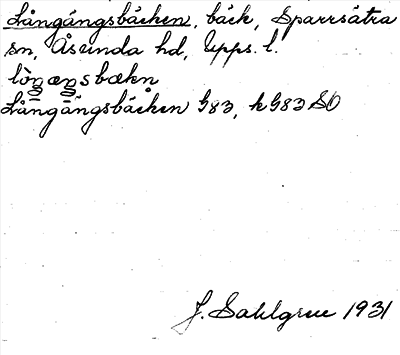 Långängsbäcken, bäck, Sparrsätra
sn, Åsunda hd, Upps. l.
lòŋæŋsbækn̥
Långängsbäcken G83, k G83 SO
J. Sahlgren 1931